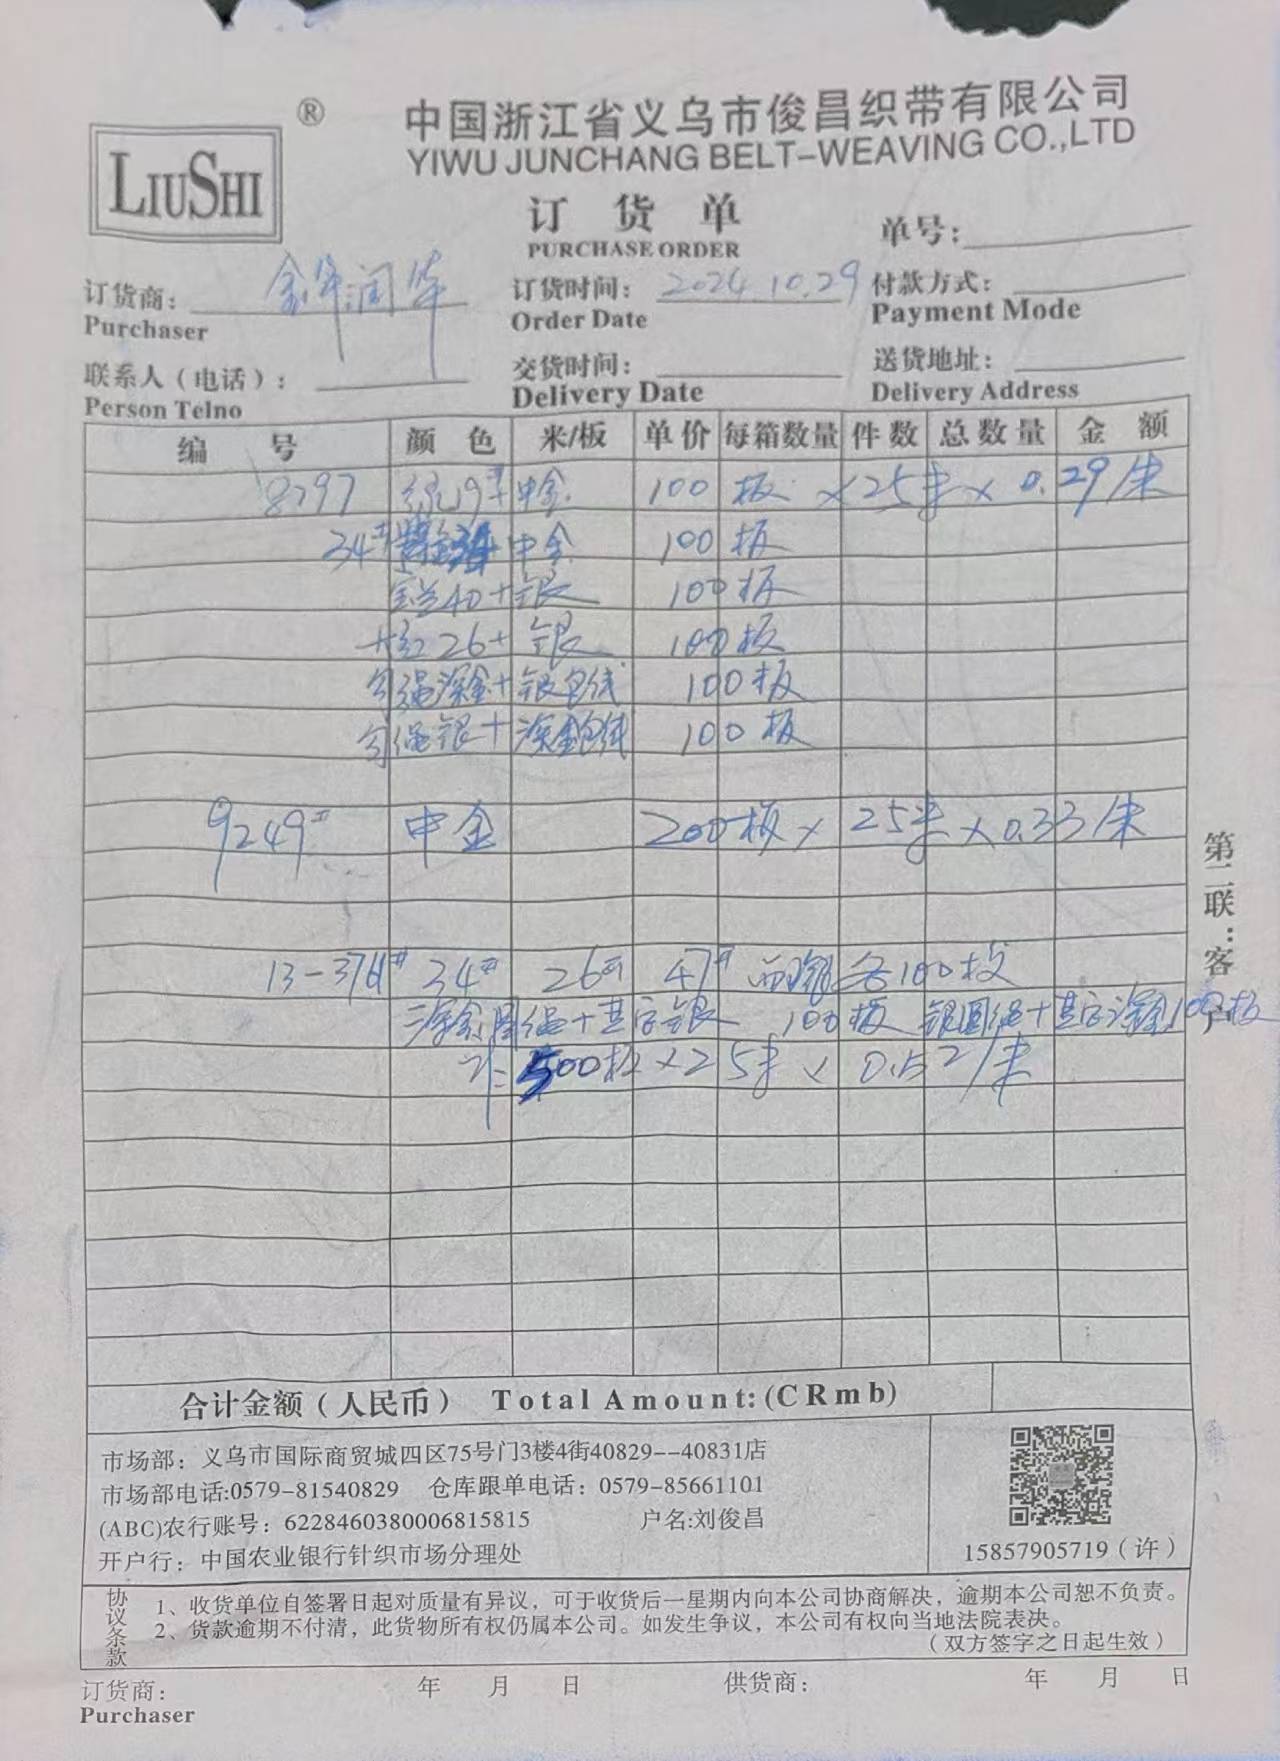 LIUSHI ®
中国浙江省义乌市俊昌织带有限公司
YIWU JUNCHANG BELT-WEAVING CO.,LTD
订 货 单
PURCHASE ORDER
单号:
订货商: 金年润华
Purchaser
订货时间: 2024.10.29
Order Date
付款方式:
Payment Mode
联系人(电话):
Person Telno
交货时间:
Delivery Date
送货地址:
Delivery Address
编 号 颜 色 米/板 单价 每箱数量 件数 总数量 金 额
8797 绿19#+中金 100板×25米×0.29/米
34# 中金 100板
宝兰40+银 100板
大红26+银 100板
匀绳深金+银包线 100板
匀绳银+深金包线 100板
9249# 中金 200板×25米×0.33/米
13-376# 34# 26# 47# 各100板
深金圆绳+其它银 100板 银圆绳+其它深金100板
500板×25米×0.52/米
第二联:客户
合计金额(人民币) Total Amount:(CRmb)
市场部: 义乌市国际商贸城四区75号门3楼4街40829--40831店
市场部电话:0579-81540829 仓库跟单电话: 0579-85661101
(ABC)农行账号: 6228460380006815815 户名:刘俊昌
开户行: 中国农业银行针织市场分理处
15857905719(许)
协议条款
1、收货单位自签署日起对质量有异议，可于收货后一星期内向本公司协商解决，逾期本公司恕不负责。
2、货款逾期不付清，此货物所有权仍属本公司。如发生争议，本公司有权向当地法院表决。
(双方签字之日起生效)
订货商: 年 月 日 供货商: 年 月 日
Purchaser